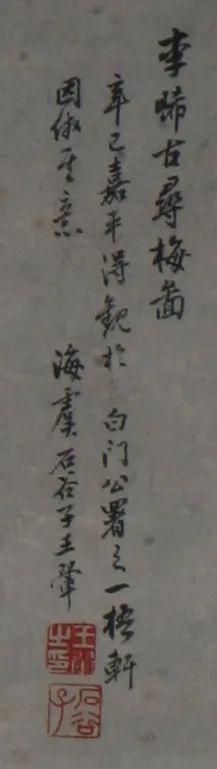 李晞古尋梅畫
辛巳嘉平得觀於 白门公署之一梧軒
因倣其意 海虞石谷子王翬
王翬之印
石谷子